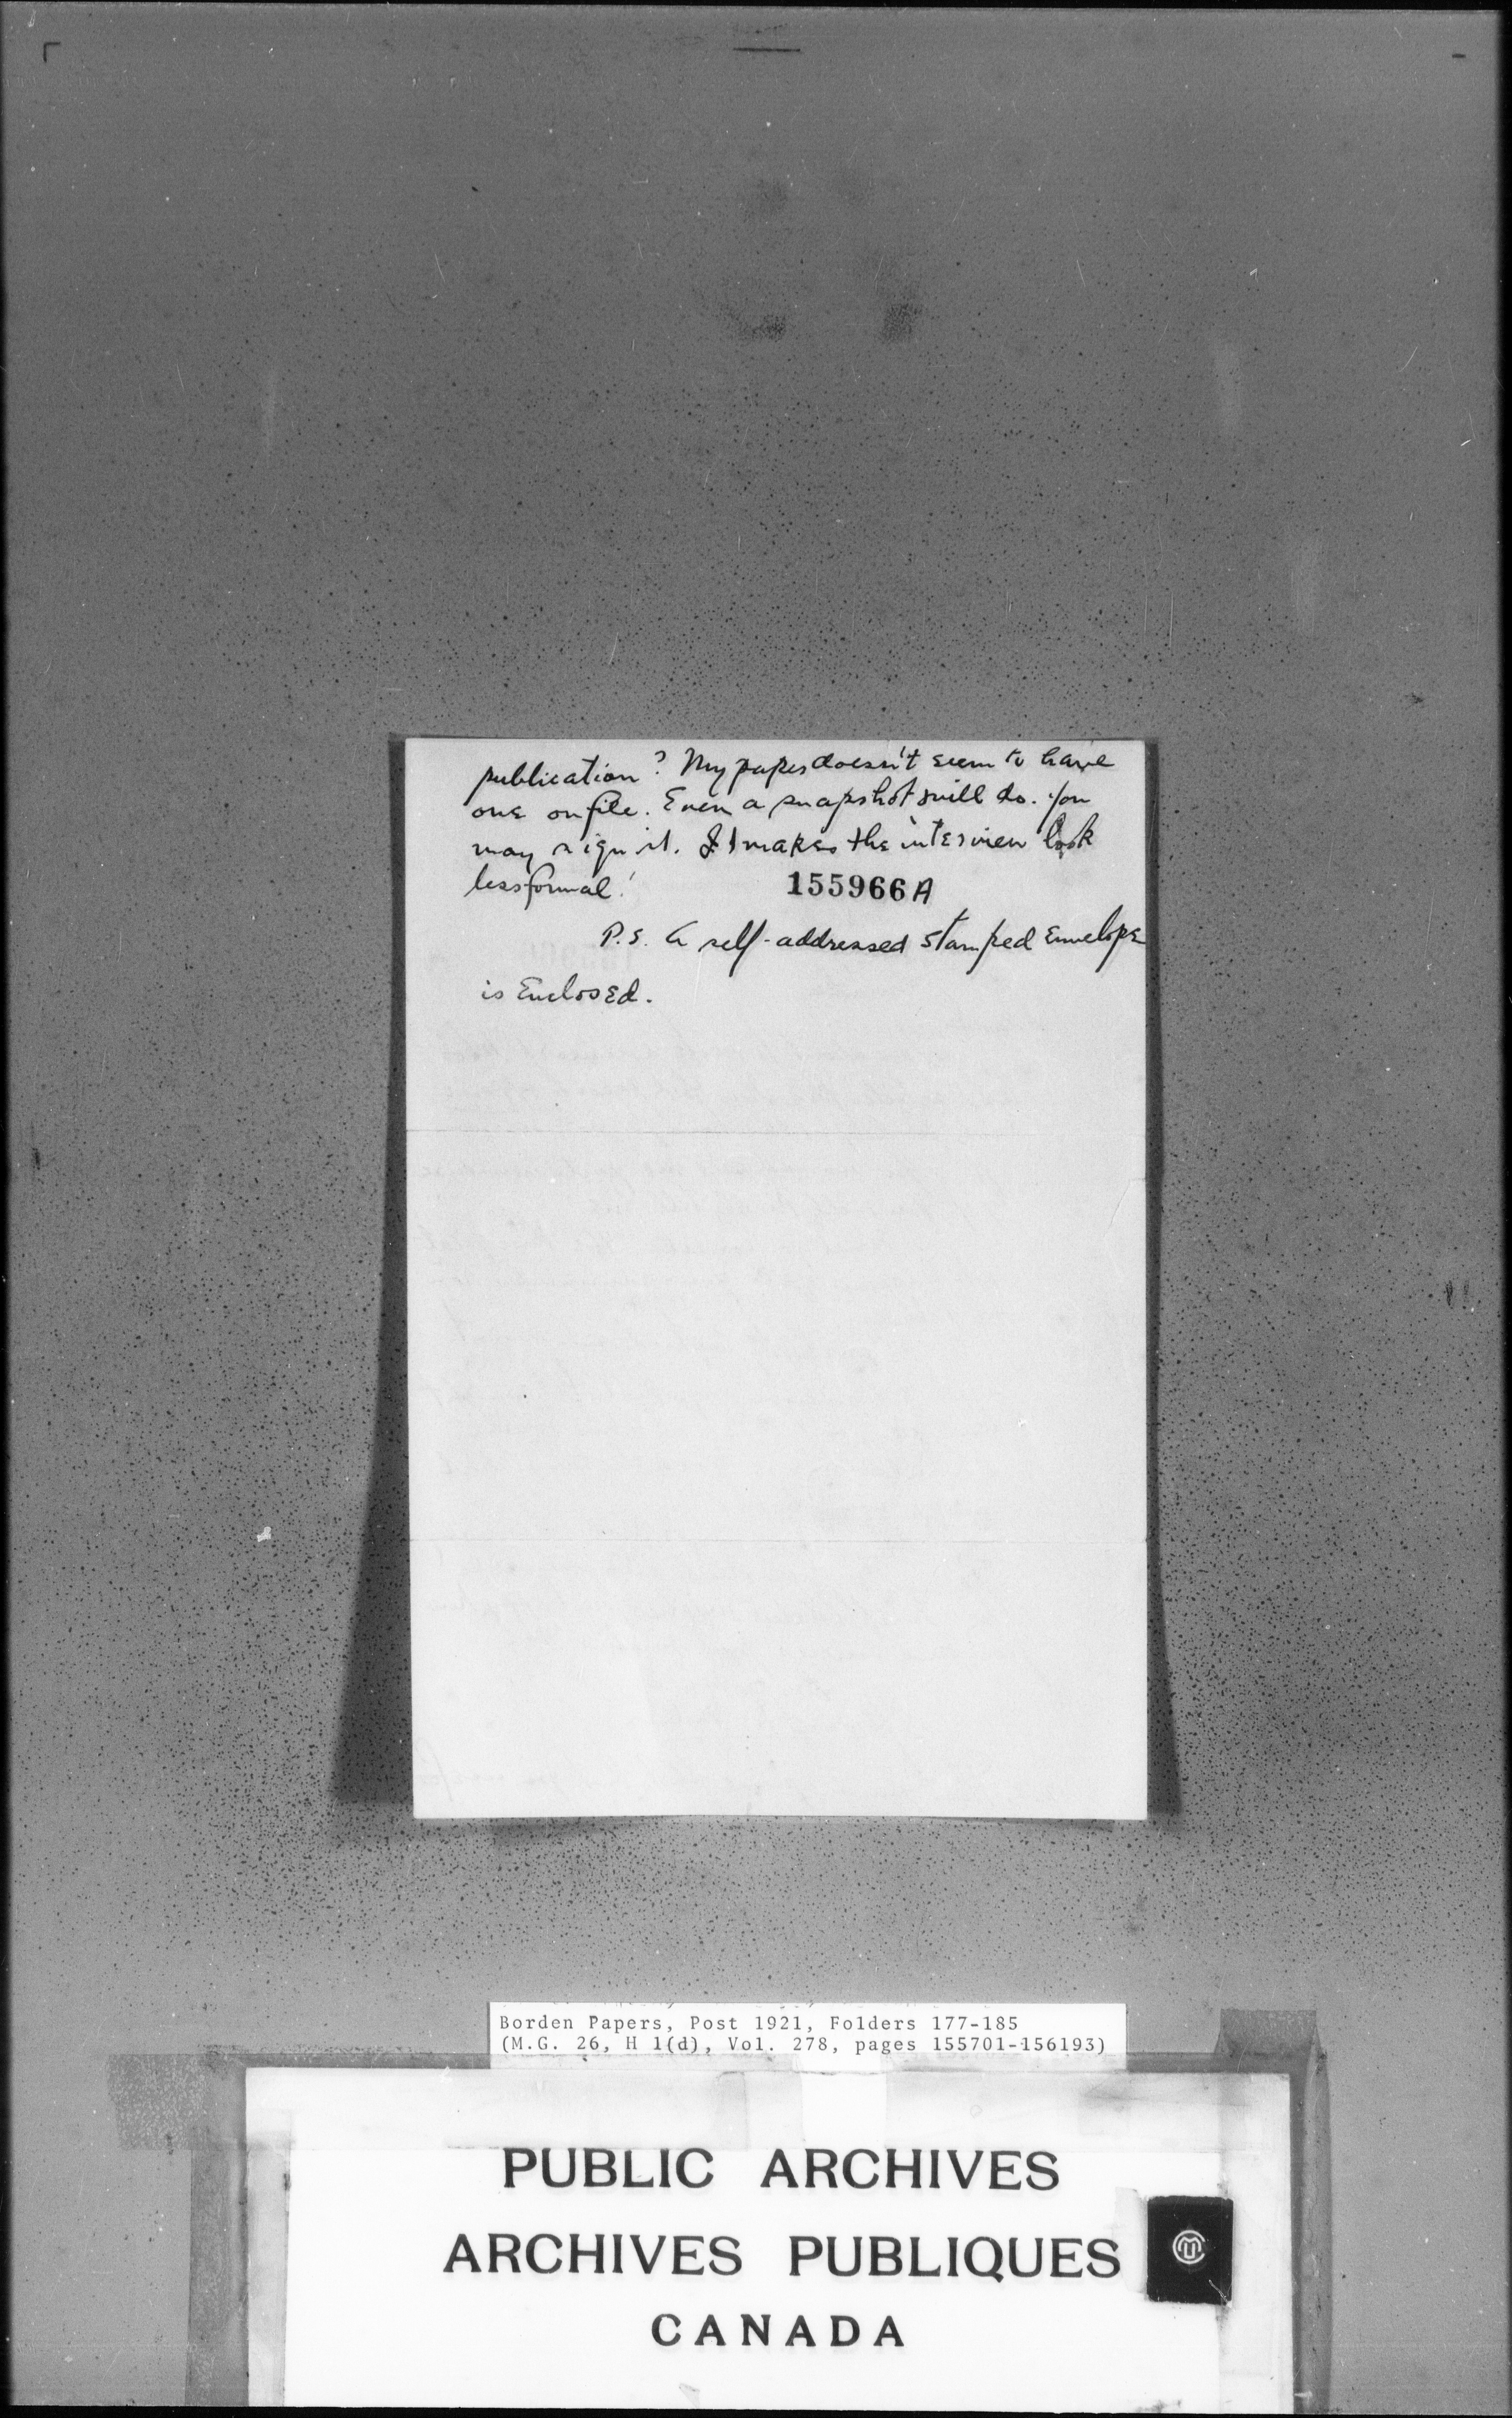 publication? My paper doesn't seem to have
one on file. Even a snapshot will do. You
may sign it. It makes the interview look
less formal!
155966A
P.S. A self-addressed stamped Envelope
is Enclosed.
Borden Papers, Post 1921, Folders 177-185
(M.G. 26, H 1(d), Vol. 278, pages 155701-156193)
PUBLIC ARCHIVES
ARCHIVES PUBLIQUES
CANADA